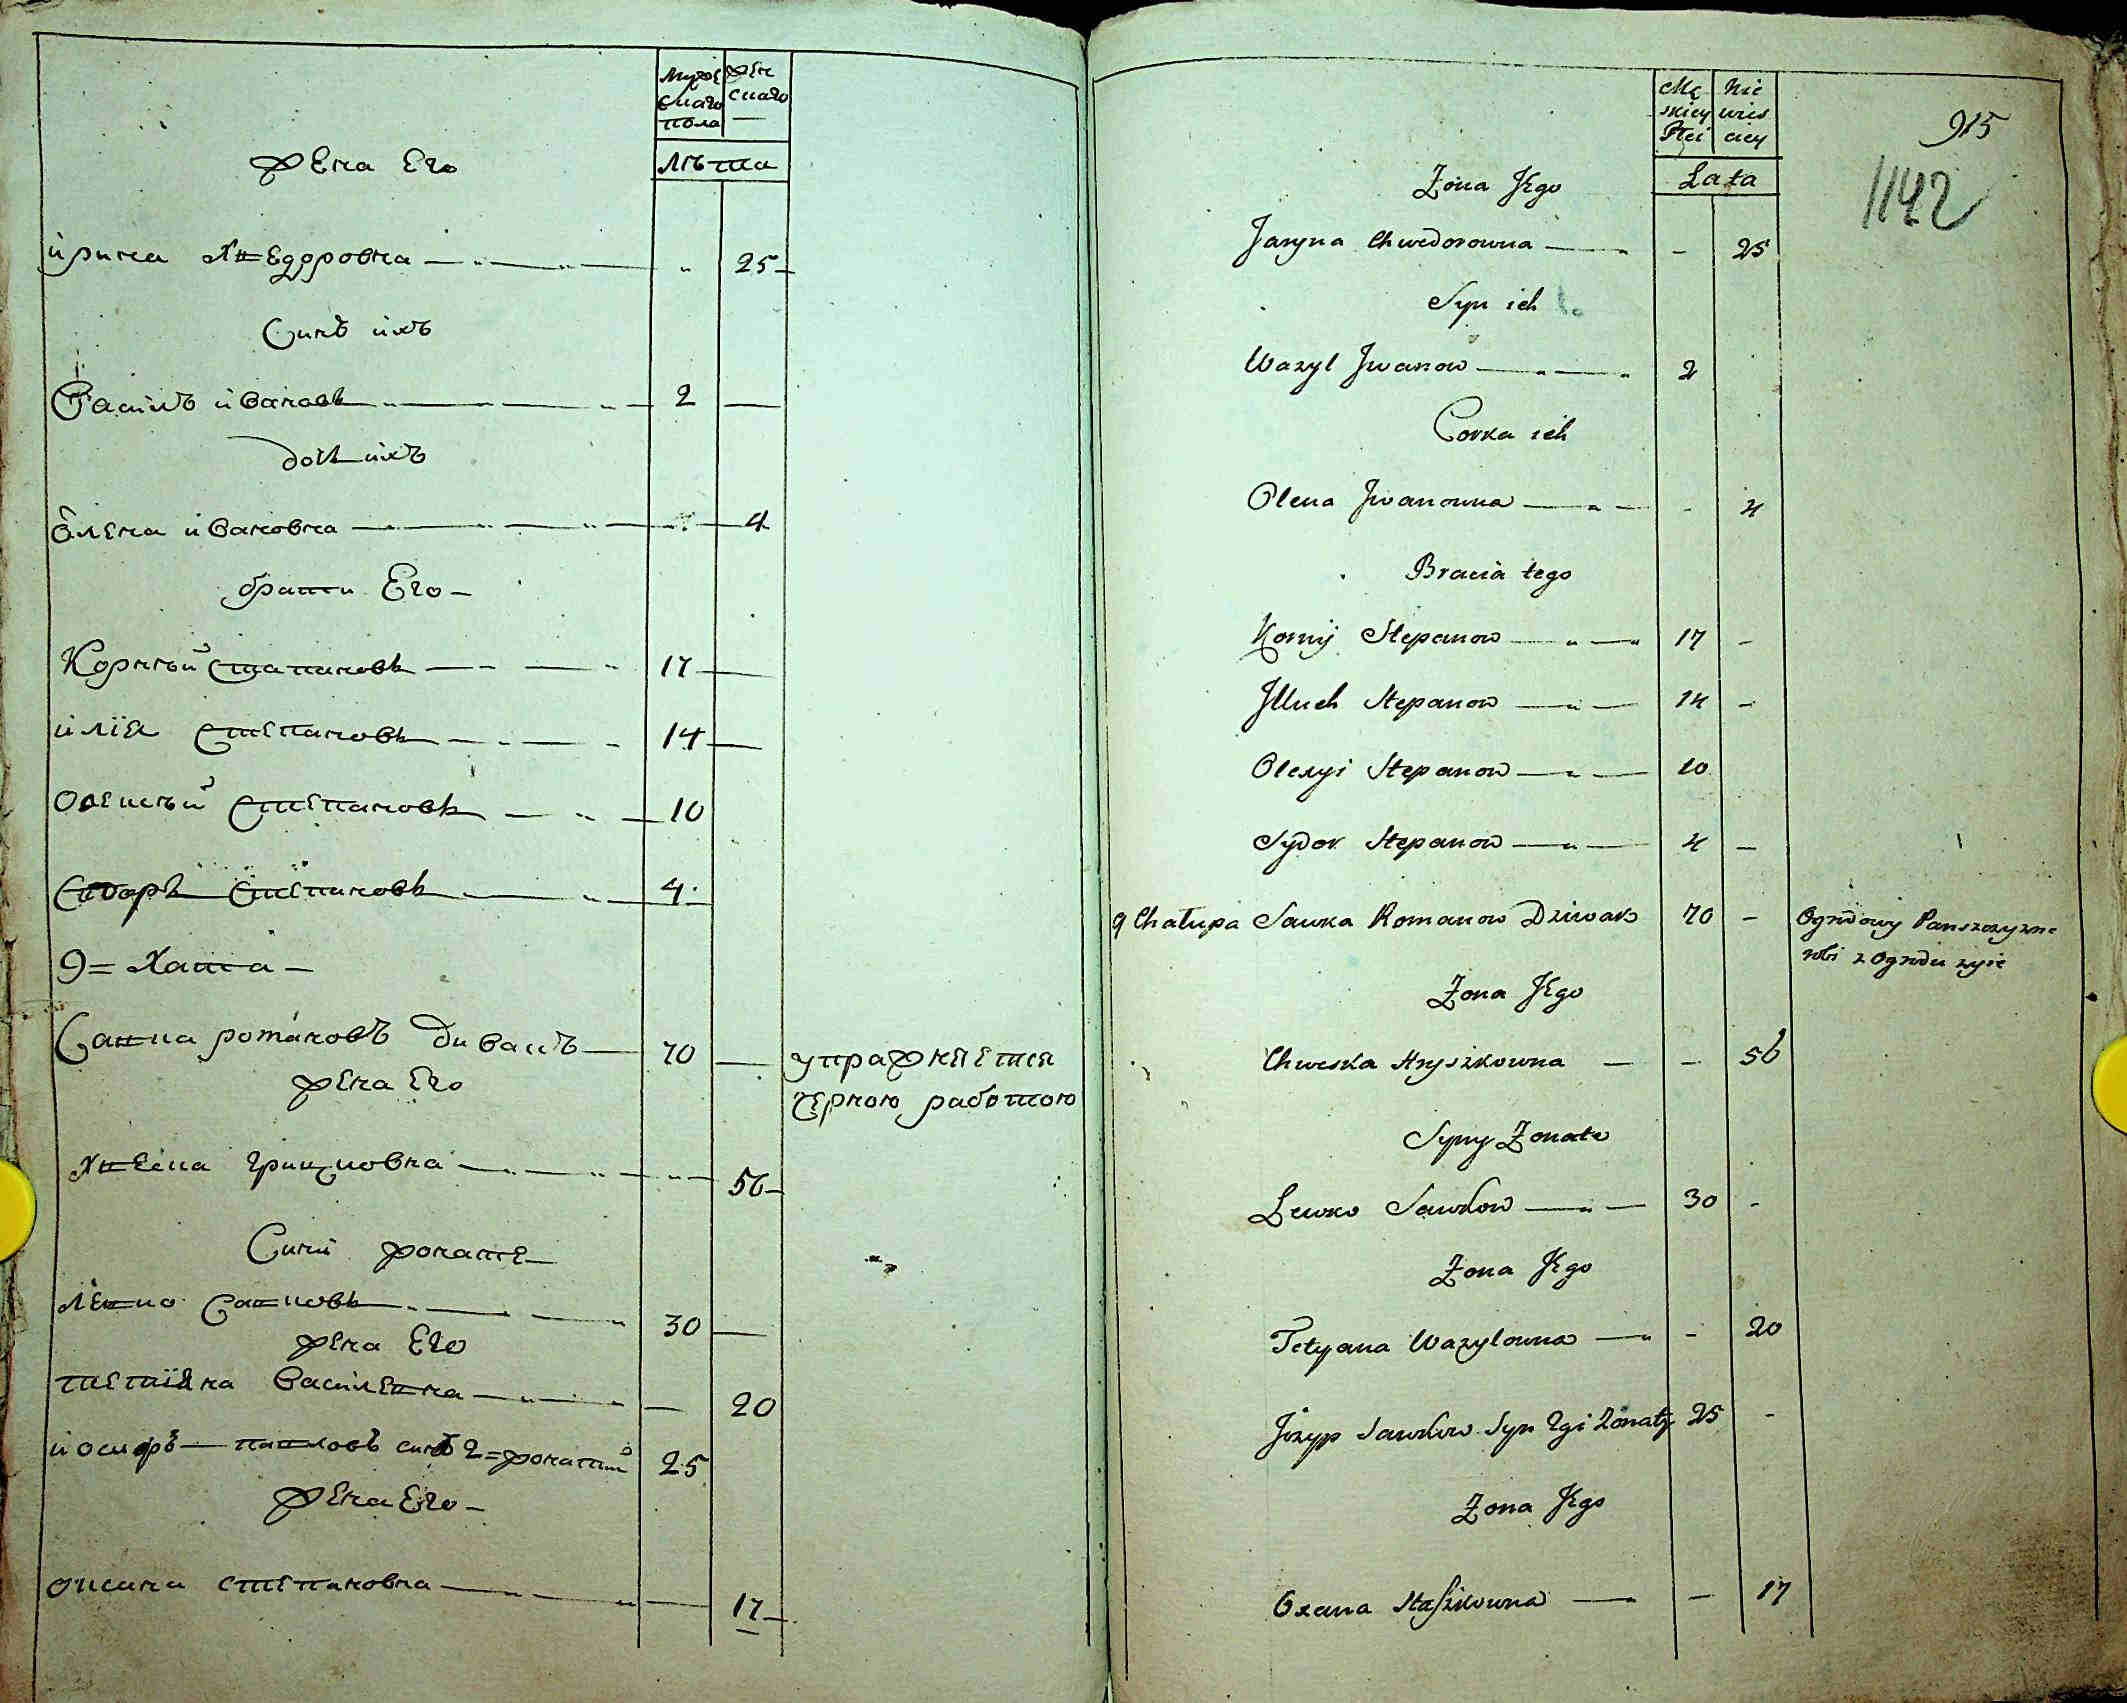 Муже Жен
скаго скаго
пола
Лѣта
Жена Его
Ирина Хведоровна 25
Синъ ихъ
Василь Ивановъ 2
дочь ихъ
Олена Ивановна 4
брати Его
Корнѣй Стапановъ 17
Илія Степановъ 14
Олексѣй Степановъ 10
Сидоръ Степановъ 4
9= Хата
Савка романовъ Дивакъ 70 упражняется
жена Его черною работою
Хвеска грицковна 56
Сини жонате
Левко Савковъ 30
жена Его
тетіяна Василевна 20
иосифъ павловъ синъ 2= жонатий 25
Жена Его
оксана степановна 17
Mę Nie
skiey wies
Płci ciey
Lata
915
1142
Żona Jego
Jaryna Chwedorowna - 25
Syn ich
Wazyl Jwanow 2
Corka ich
Olena Jwanowna - 4
Bracia tego
Korniy Stepanow 17 -
Jlluch Stepanow 14 -
Olexyi Stepanow 10
Sydor Stepanow 4 -
9 Chałupa Sawka Romanow Dziwak 70 - Ogrodowy Panszczyzne
robi z Ogrodu zyie
Zona Jego
Chweska Hryszkowna - 56
Syny Zonate
Lewko Sawkow 30 -
Zona Jego
Tetyana Wazylowna - 20
Jozyp Sawkow Syn 2gi Zonaty 25 -
Zona Jego
Oxana Staszkowna - 17